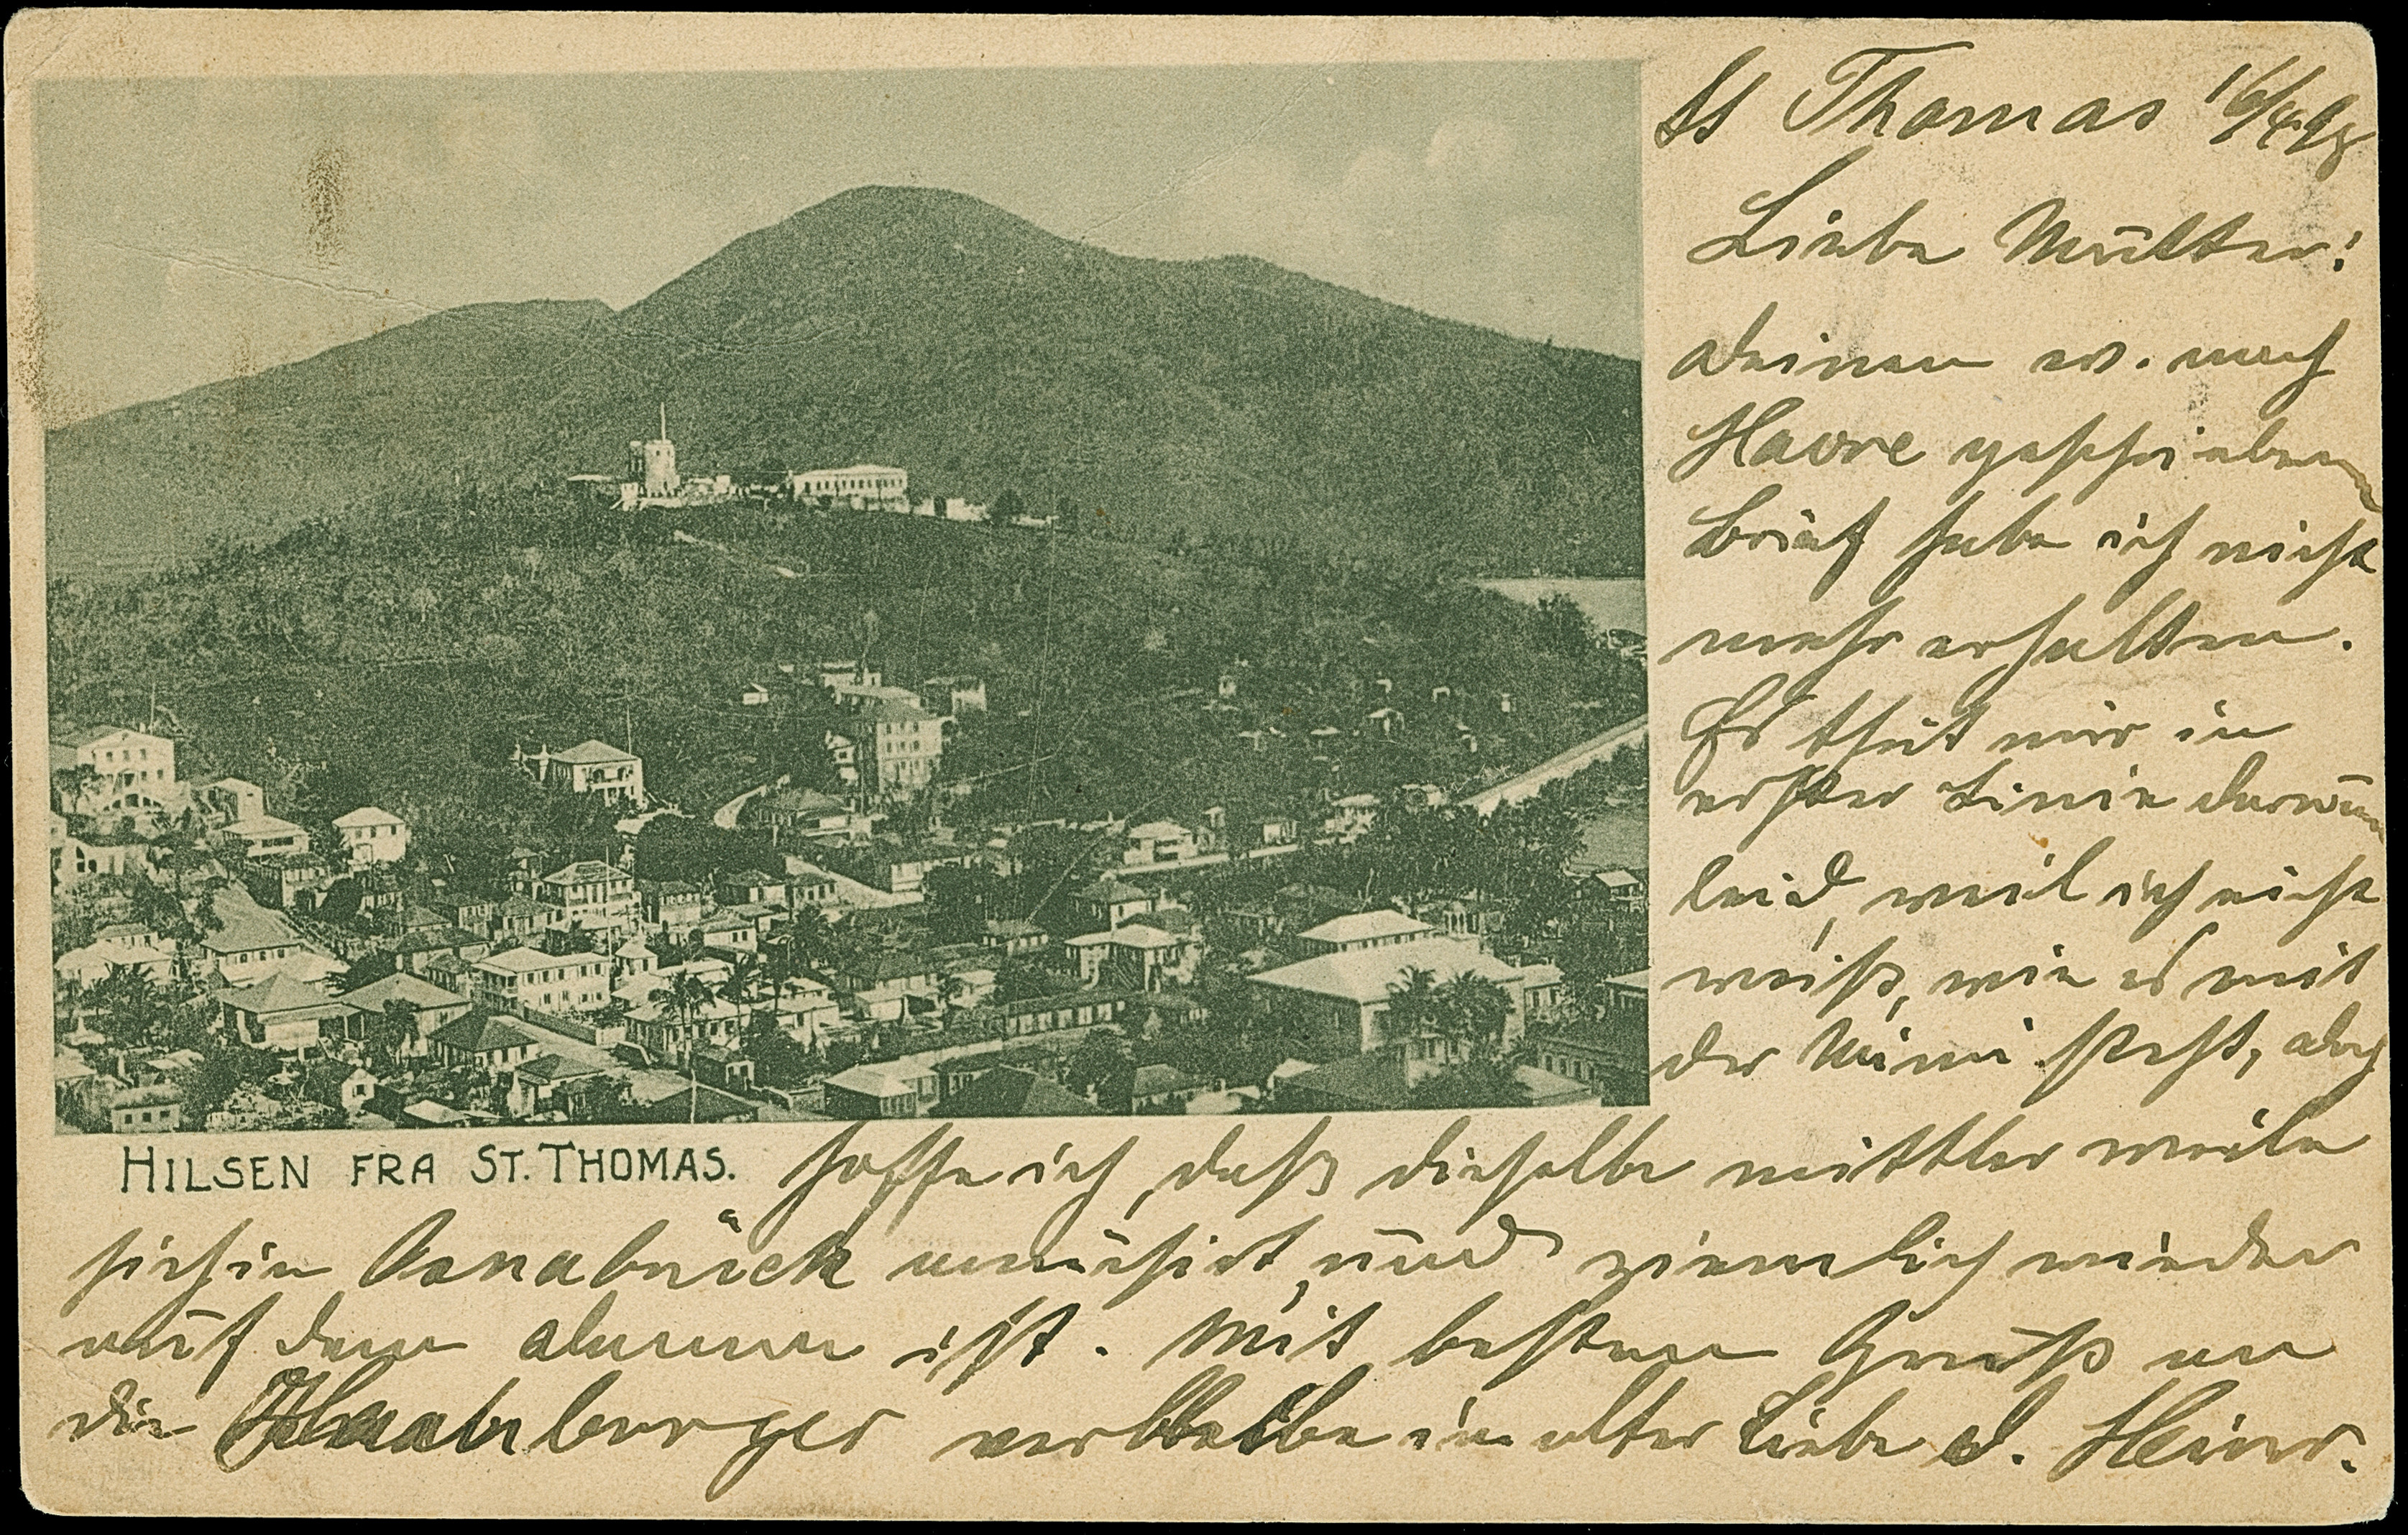 St Thomas 16/4 98
Liebe Mutter!
deinen ev. nach
Havre geschriebenen
Brief habe ich nicht
mehr erhalten.
Es thut mir in
erster Linie darum
leid, weil ich nicht
weiß, wie es mit
der Mimi steht, aber
HILSEN FRA ST. THOMAS.
hoffe ich, daß dieselbe mittlerweile
sich in Osnabrück amüsirt, und ziemlich wieder
auf dem ist. Mit besten Gruß an
die verbleibe in alter Liebe d. Heinr.